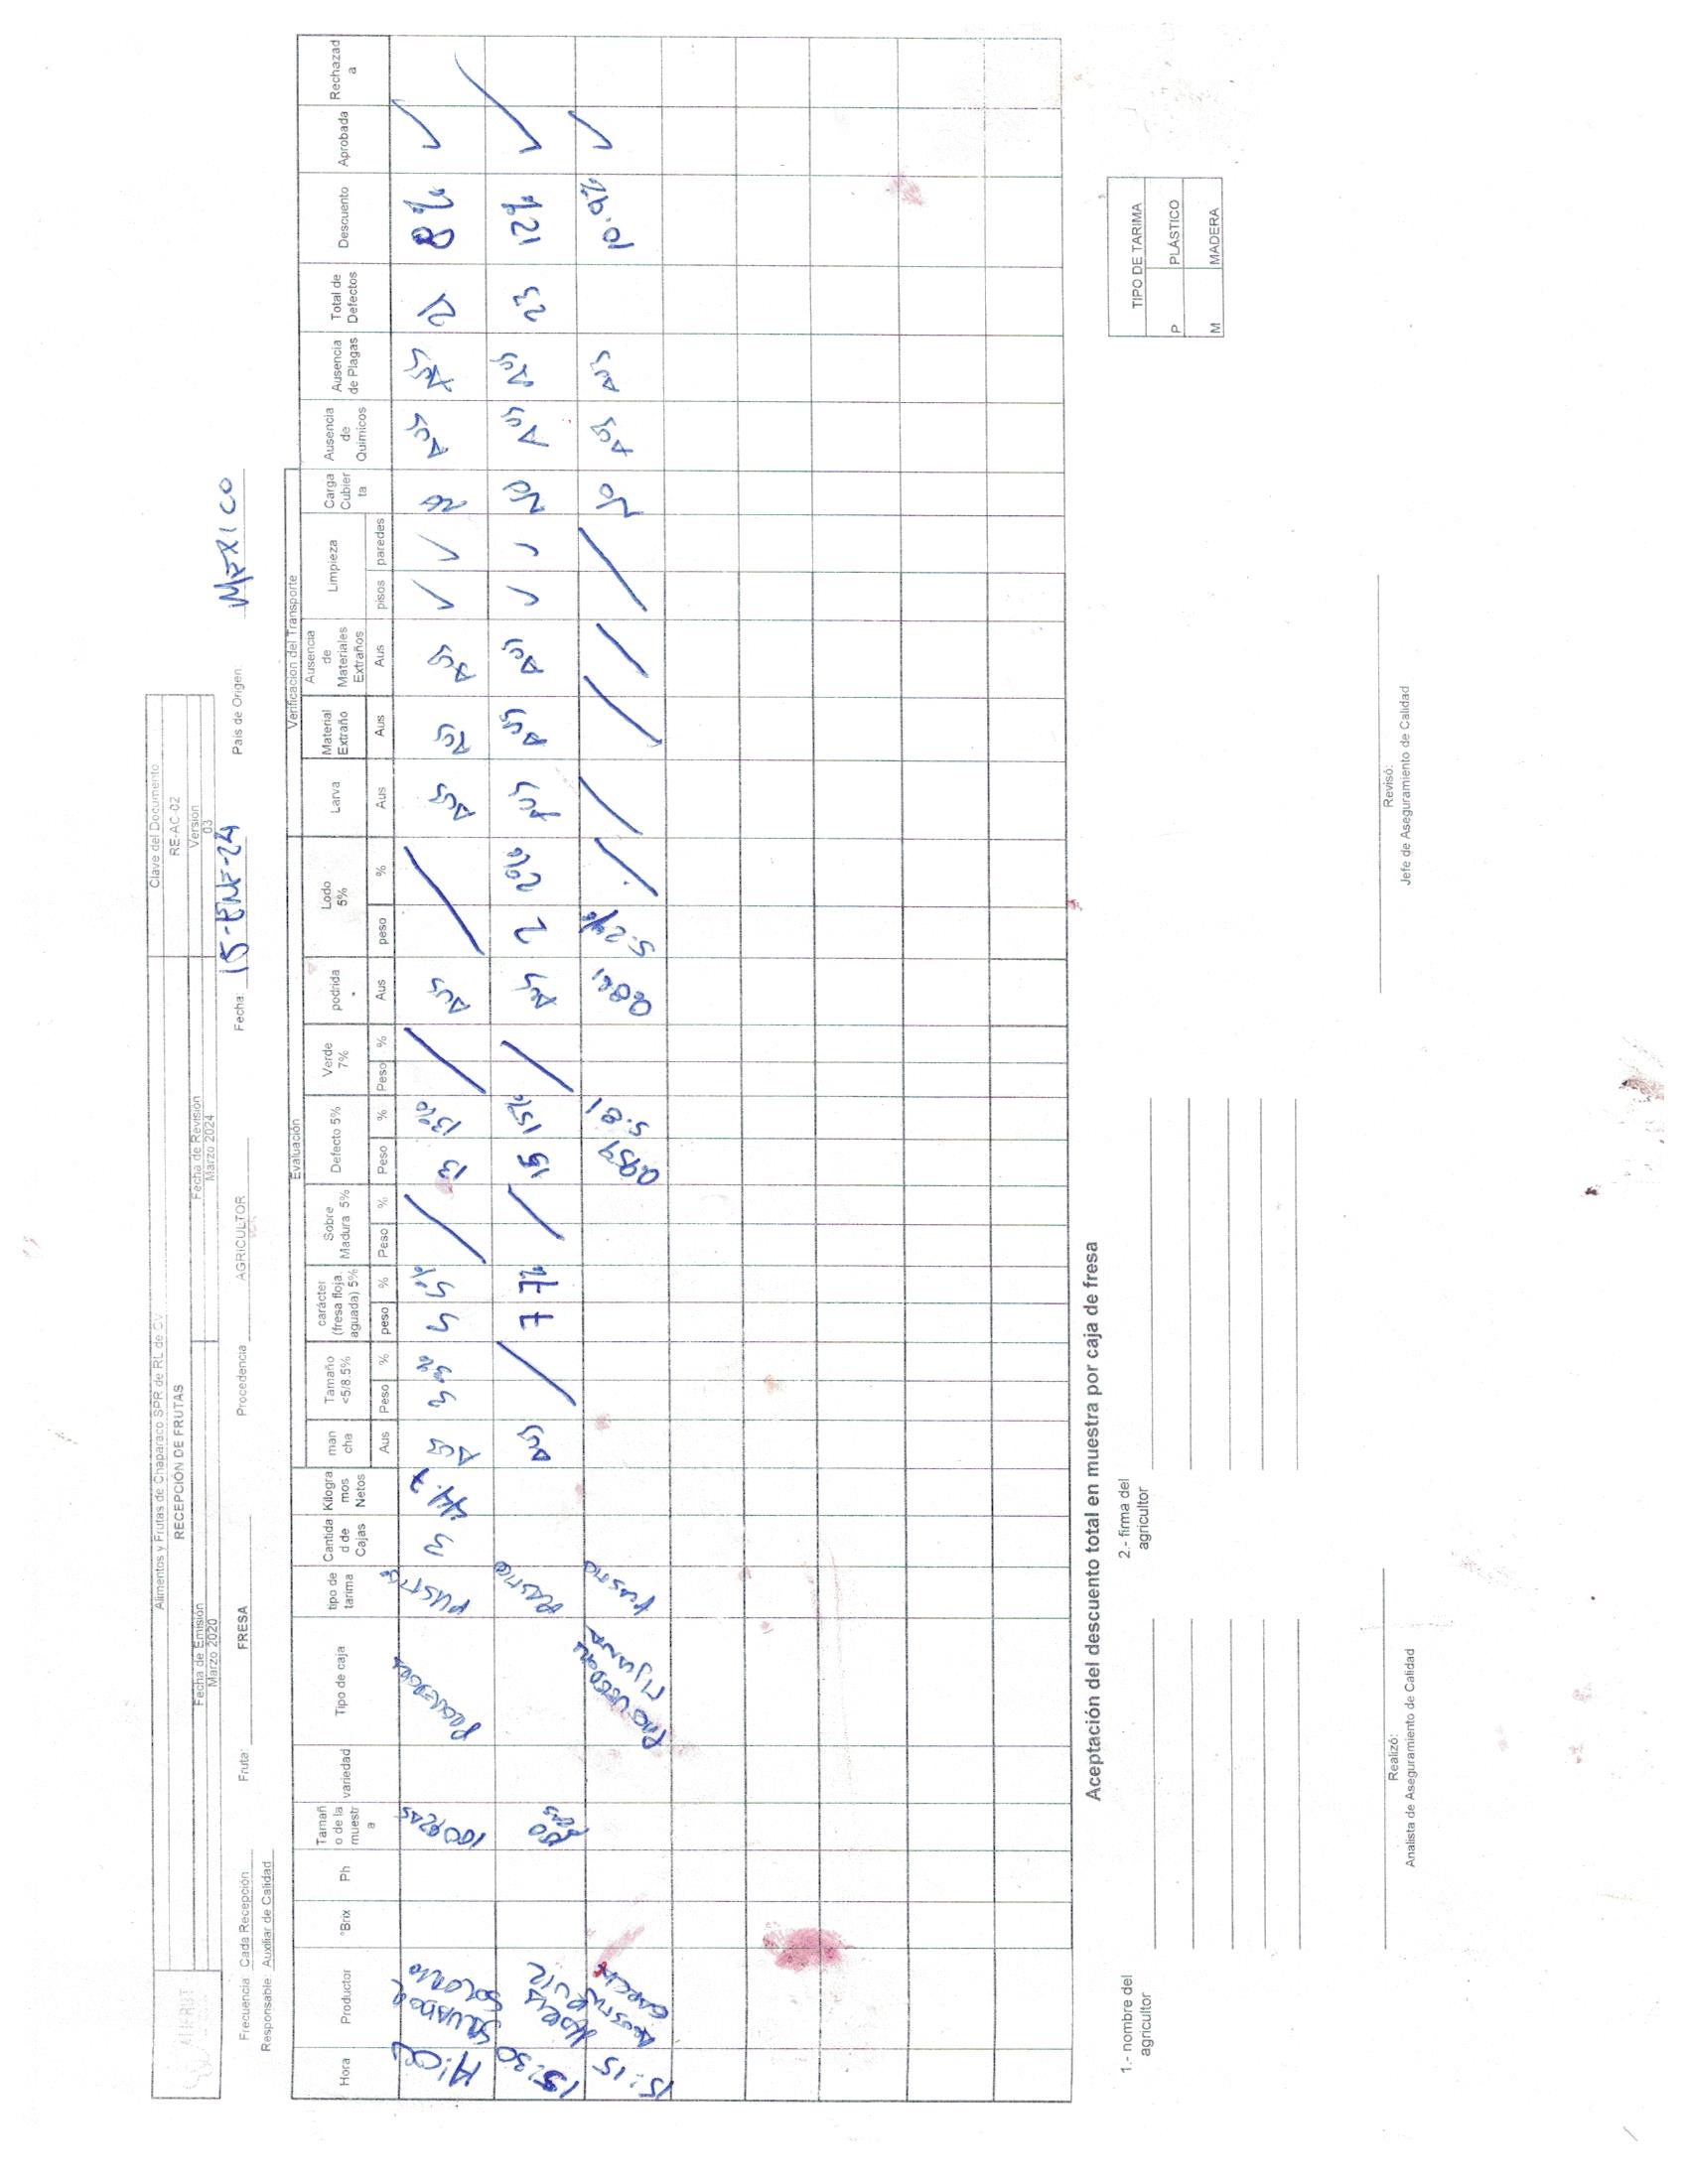 ALIFRUT
Alimentos y Frutas de Chaparaco SPR de RL de CV
RECEPCIÓN DE FRUTAS
Fecha de Emisión
Marzo 2020
Fecha de Revisión
Marzo 2024
Clave del Documento
RE-AC-02
Versión
03
Frecuencia: Cada Recepción
Fruta: FRESA
Procedencia AGRICULTOR
Fecha: 15-ENE-24
País de Origen: MEXICO
Responsable: Auxiliar de Calidad
Evaluación
Verificación del Transporte
Hora
Productor
°Brix
Ph
Tamañ
o de la
muestr
a
variedad
Tipo de caja
tipo de
tarima
Cantida
d de
Cajas
Kilogra
mos
Netos
man
cha
Aus
Tamaño
<5/8.5%
Peso %
carácter
(fresa floja.
aguada) 5%
peso %
Sobre
Madura 5%
Peso %
Defecto 5%
Peso %
Verde
7%
Peso %
podrida
Aus
Lodo
5%
peso %
Larva
Aus
Material
Extraño
Aus
Ausencia
de
Materiales
Extraños
Aus
Limpieza
pisos paredes
Carga
Cubier
ta
Ausencia
de
Químicos
Ausencia
de Plagas
Total de
Defectos
Descuento
Aprobada
Rechazad
a
SALVADOR
SOLORIO
100 PZAS
PLASTICO 3 44.7 AUS 3 3% 5 5% 13 13% AUS AUS AUS AUS ✓ ✓ NO AUS AUS 21 8% ✓
15:30
RUIZ
100
PLASTICO AUS 7 7% 15 15% AUS 2 2% AUS AUS AUS ✓ ✓ NO AUS AUS 23 12% ✓
15:15
AGUSTIN
GARCIA
TIJUANA
5.81 5.2% NO AUS AUS 10.9% ✓
Aceptación del descuento total en muestra por caja de fresa
1.- nombre del
agricultor
2.- firma del
agricultor
TIPO DE TARIMA
P PLÁSTICO
M MADERA
Realizó:
Analista de Aseguramiento de Calidad
Revisó:
Jefe de Aseguramiento de Calidad